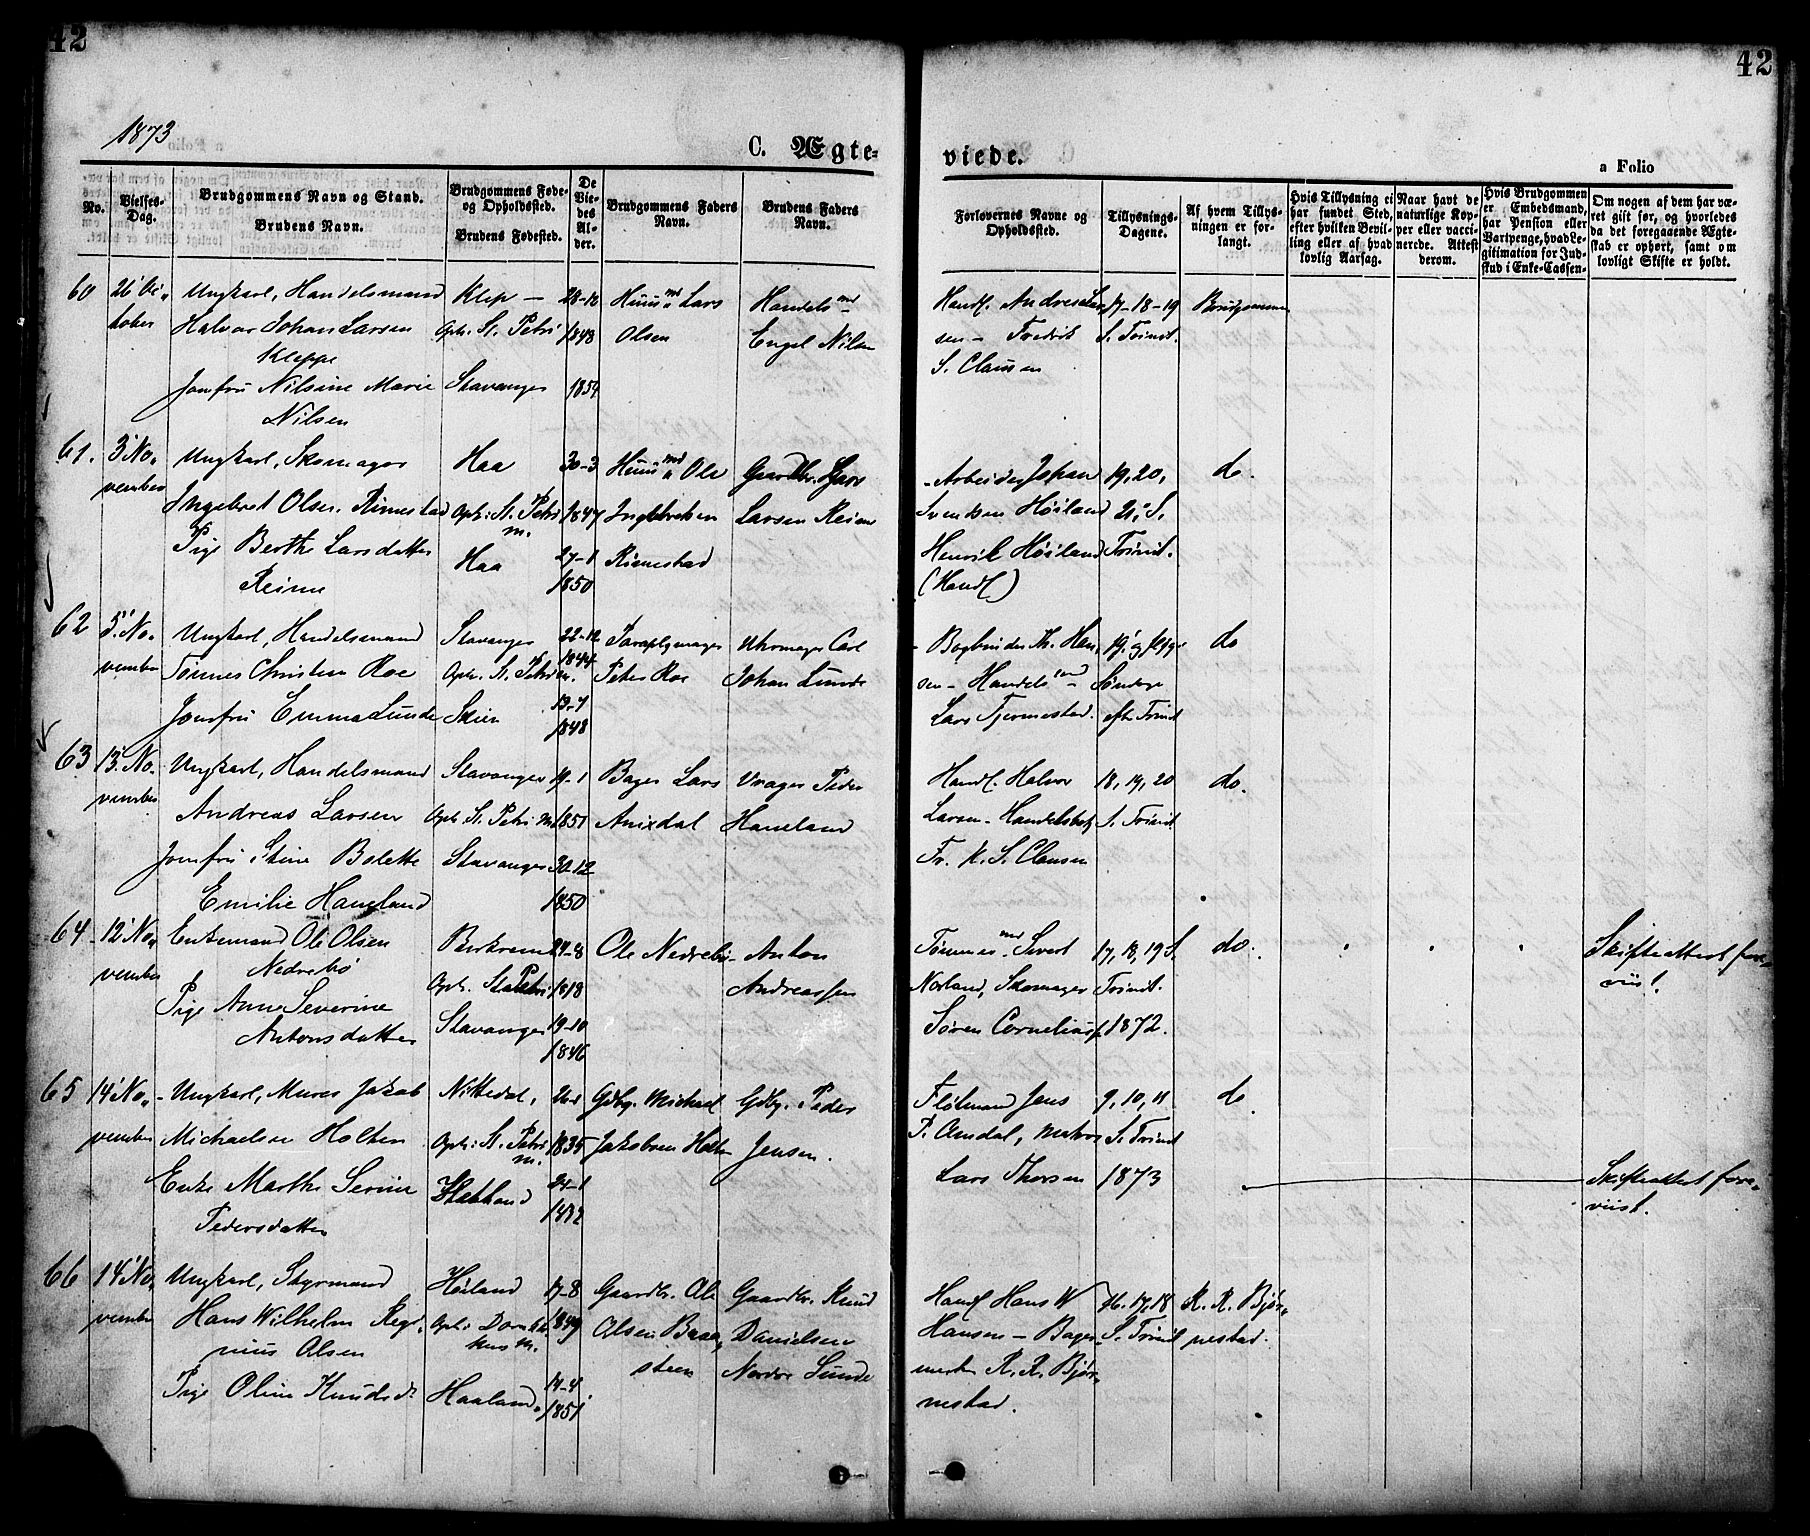 42
42
1873
C. Ægte-
viede.
a Folio
No.
Vielses-
Dag.
Brudgommens Navn og Stand.
Brudens Navn.
Brudgommens Føde-
og Opholdssted.
Brudens Fødested.
De
Vie-
des
Al-
der.
Brudgommens Faders
Navn.
Brudens Faders
Navn.
Forlovernes Navne og
Opholdssted.
Tillysnings-
Dagene.
Af hvem Tillys-
ningen er for-
langt.
Hvis Tillysning ei
har fundet Sted,
efter hvilken Bevil-
ling eller af hvad
lovlig Aarsag.
Naar havt de
naturlige Kop-
per eller vacci-
nerede. Attest
derom.
Hvis Brudgommen
er Embedsmand,
har Pension eller
Vartpenge, hvad Le-
gitimation for Ind-
skud i Enke-Cassen-
Om nogen af dem har væ-
ret gift før, og hvorledes
da det foregaaende Ægte-
skab er ophørt, samt om
lovligt Skifte er holdt.
60
26' Oc
tober
Ungkarl, Handelsmand
Halvor Johan Larsen
Kleppe
Jomfru Nilsine Marie
Nilsen
Klep -
Oph. St. Petri
Stavanger
1843
1854
Huusmd Lars
Olsen
Handelsmd
Engel Nilsen
Handl. Andreas Lar
sen - Fredrik
S. Clausen
17-18-19
S. Trinit.
Brudgommen
61.
3' No
vember
Ungkarl, Skomager
Ingebret Olsen Rimestad
Pige Berthe Larsdatter
Reime
Haa
Oph: St. Petri
m.
Haa
30-3
1847
27-1
1850
Huusmd Ole
Ingebretsen
Rimestad
Gaardbr. Lars
Larsen Reime
Arbeider Johan
Svendsen Høiland
Henrik Høiland
(Handl.)
19, 20,
21' S.
Trinit.
do.
62
5' No.
vember
Ungkarl, Handelsmand
Tønnes Christian Roe
Jomfru Emma Lunde
Stavanger
Oph. St. Petri m.
Skien
22-12
1844
13-7
1848
Paraplymager
Peter Roe
Uhrmager Carl
Johan Lunde
Bogbinder Th. Han
sen - Handelsmd
Lars Tjermestad.
19' og følge
Søndage
efter Trinit
do
63
13' No.
vember
Ungkarl, Handelsmand
Andreas Larsen
Jomfru Stine Bolette
Emilie Haneland
Stavanger
Oph. St. Petri M.
Stavanger
1851
30-12
1850
Bager Lars
Anixdal
Vrager Peder
Haneland
Handl. Halvor
Larsen - Handelsbetj
Fr. K. S. Clausen
18, 19, 20
S. Trinit
do.
64
12' No
vember
Enkemand Ole Olsen
Nedrebø
Pige Anne Severine
Antonsdatter
Berkrem
Oph. St. Petri
Stavanger
24-8
1818
19-10
1846
Ole Nedrebø
Anton
Andreassen
Tømmermd Sivert
Norland, Skomager
Søren Corneliuss
17, 18, 19 S.
Trinit.
1872.
do.
Skifteattest fore
viist.
65
14' No
vember
Ungkarl, Murer Jakob
Michaelsen Holter
Enke Marthe Serine
Pedersdatter
Nittedal,
Oph: St. Petri
m.
1835
Gdbr. Michael
Jakobsen Holter
Gdbr. Peder
Jensen.
Flötmand Jens
P. Omdal, matros
Lars Thorsen
9, 10, 11
S. Trinit
1873
do
Skifteattest fore
viist.
66
14' No
vember
Ungkarl, Styrmand
Hans Wilhelm Regi
nius Olsen
Pige Oline Knudsd.
Høiland
Oph: Domkir
kens M.
Haaland
17-8
1849
14-4
1851
Gaardbr. Ole
Olsen Braa
steen
Gaardbr. Knud
Danielsen
Nordre Sunde
Handl Hans W
Hansen - Bager
mester R. R. Bjør
nestad.
16. 17, 18
S. Trinit
R. R. Bjør
nestad.